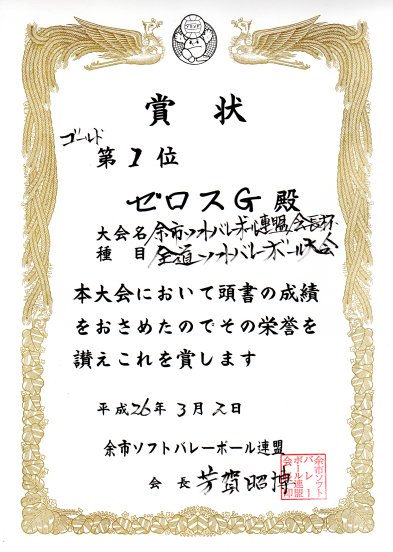 賞状
ゴールド
第1位
ゼロスG殿
大会名 余市ソフトバレーボール連盟会長杯
種目 全道ソフトバレーボール大会
本大会において頭書の成績
をおさめたのでその栄誉を
讃えこれを賞します
平成26年3月2日
余市ソフトバレーボール連盟
会長 芳賀昭博
余市ソフト
バレー
ボール連盟
会長印